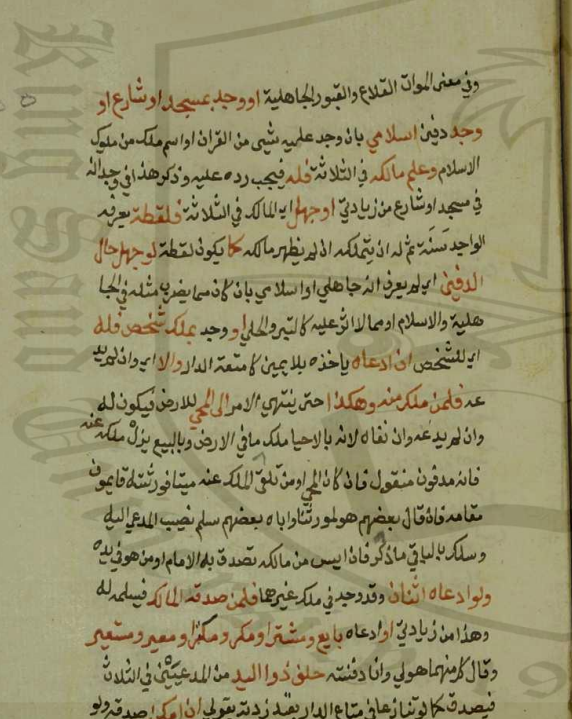 وفي معنى الموات القلاع والقبور الجاهلية او وجد بمسجد او شارع او
وجد دفين اسلامي بان وجد عليه شيء من القران او اسم ملك من ملوك
الاسلام وعلم مالكه في الثلاثة فله فيجب رده عليه وذكر هذا في وجدانه
في مسجد او شارع من زيادتي او جهل اي المالك في الثلاثة فلقطة يعرفه
الواجد سنة ثم له ان يتملكه ان لم يظهر مالكه كما يكون لقطة لو جهل حال
الدفين اي لم يعرف انه جاهلي او اسلامي بان كان مما يضرب مثله في الجا
هلية والاسلام او مما لا اثر عليه كالتبر والحلي او وجد بملك شخص فله
اي للشخص ان ادعاه ياخذه بلا يمين كامتعة الدار والا اي وان لم يد
عه فلمن ملك منه وهكذا حتى ينتهي الامر الى المحي للارض فيكون له
وان لم يدعه وان نفاه لانه بالاحيا ملك ما في الارض وبالبيع لم يزل ملكه عنه
فانه مدفون منقول فان كان المحي او من تلقى الملك عنه ميتا فورثته قايمون
مقامه فان قال بعضهم هو لمورثنا واباه بعضهم سلم نصيب المدعي اليه
وسلك بالباقي ما ذكر فان ايس من مالكه تصدق به الامام او من هو في يده
ولو ادعاه اثنان وقد وجد في ملك غيرهما فلمن صدقه المالك فيسلم له
وهذا من زيادتي او ادعاه بايع ومشتر او مكر ومكتر او معير ومستعير
وقال كل منهما هو لي وانا دفنته حلف ذو اليد من المدعيين في الثلاث
فيصدق كما لو تنازعا في متاع الدار بقيد زدته بقولي ان امكن صدقه ولو